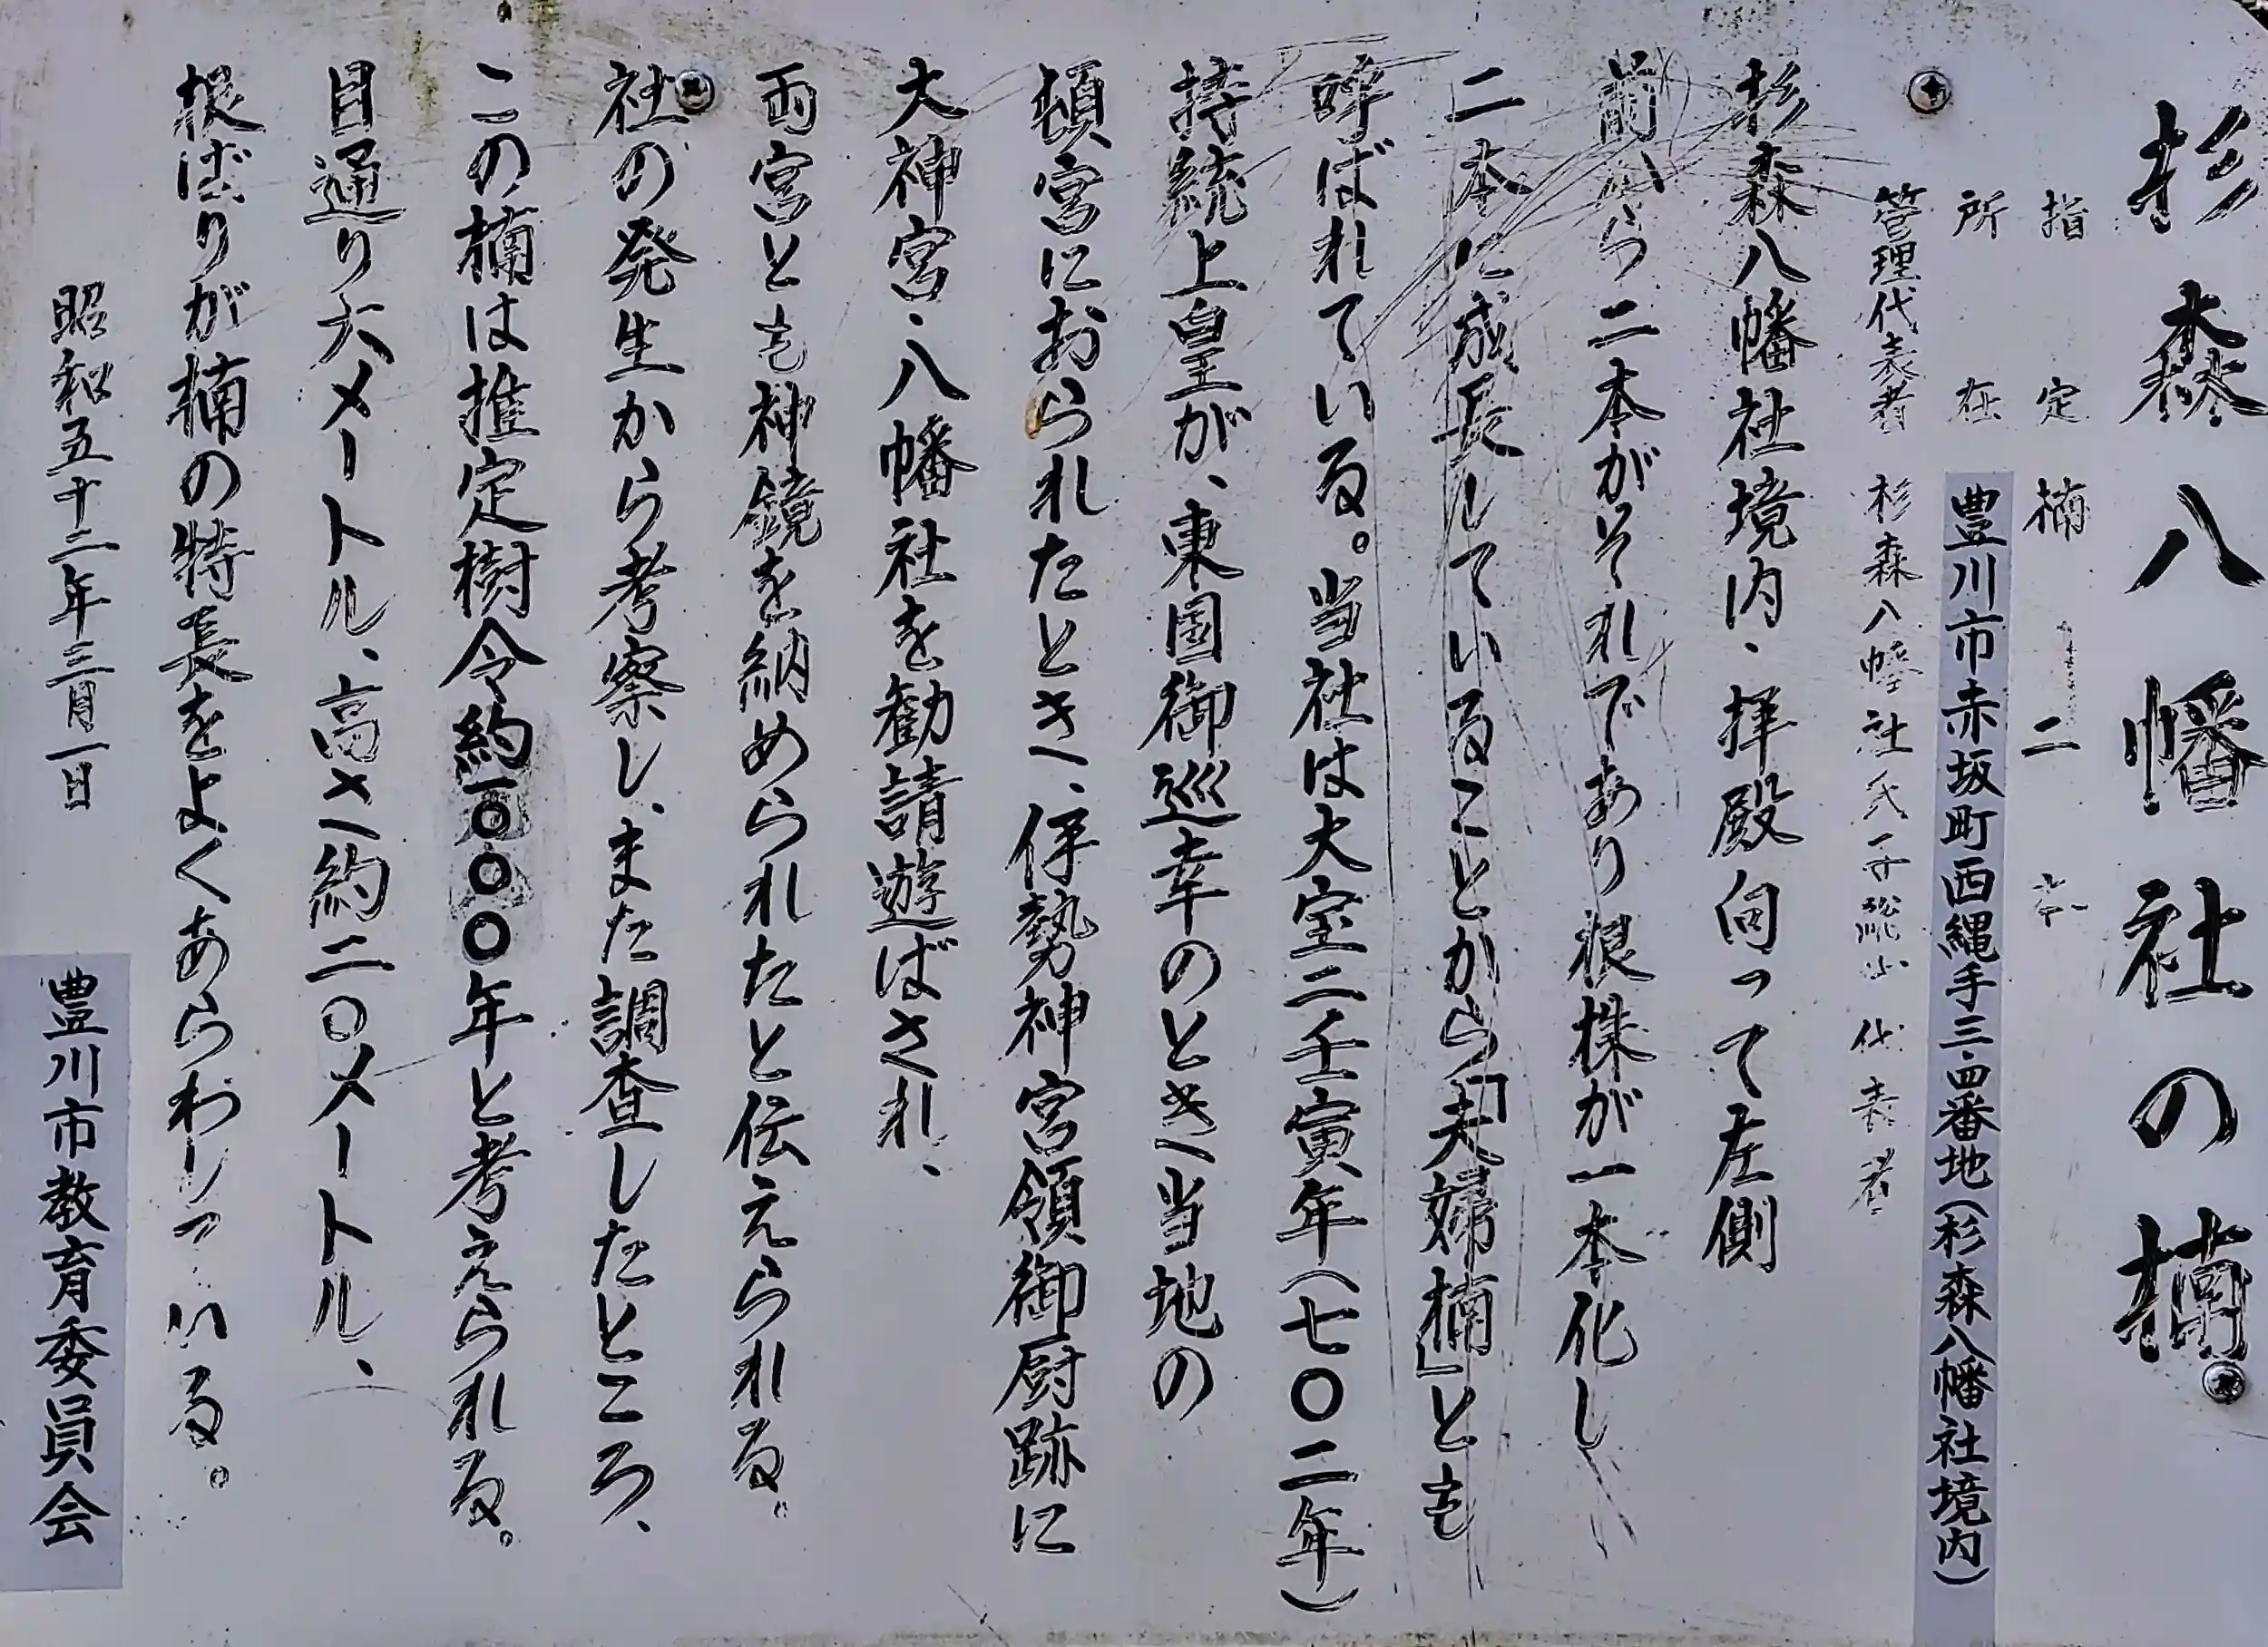 杉森八幡社の楠
指定 楠 二本
所在 豊川市赤坂町西縄手三・四番地(杉森八幡社境内)
管理代表者 杉森八幡社氏子総代代表者
杉森八幡社境内・拝殿向って左側
前から二本がそれであり根株が一本化し
二本に成長していることから「夫婦楠」とも
呼ばれている。当社は大宝二壬寅年(七〇二年)
持統上皇が、東国御巡幸のとき当地の
頓宮におられたとき、伊勢神宮領御厨跡に
大神宮、八幡社を勧請遊ばされ、
両宮とも神鏡を納められたと伝えられる。
社の発生から考察し、また調査したところ、
この楠は推定樹令約一〇〇〇年と考えられる。
目通り六メートル、高さ約二〇メートル、
根ばりが楠の特長をよくあらわしている。
昭和五十二年三月一日
豊川市教育委員会